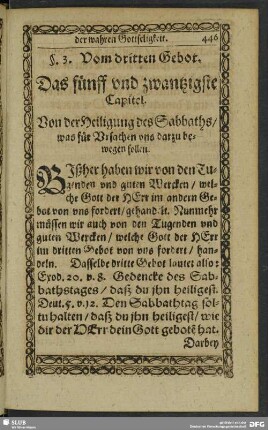 der wahren Gottseligkeit. 446
§. 3. Vom dritten Gebot.
Das fünff vnd zwantzigste
Capitel.
Von der Heiligung des Sabbaths/
was für Vrsachen vns darzu be-
wegen sollen.
BIßher haben wir von den Tu-
genden vnd guten Wercken / wel-
che Gott der HErr im andern Ge-
bot von vns fordert/ gehandelt. Nunmehr
müssen wir auch von den Tugenden vnd
guten Wercken/ welche Gott der HErr
im dritten Gebot von vns fordert/ han-
deln. Dasselbe dritte Gebot lautet also:
Exod. 20. v. 8. Gedencke des Sab-
bathstages / daß du jhn heiligest.
Deut. 5. v. 12. Den Sabbathtag sol-
tu halten / daß du jhn heiligest/ wie
dir der HErr dein Gott gebotē hat.
Darbey
SLUB
DFG